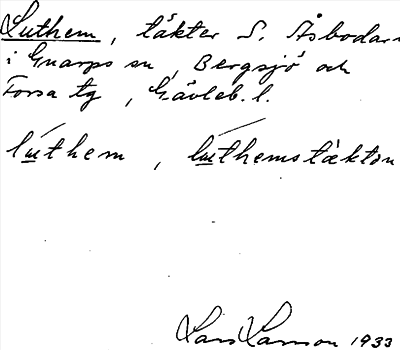 Luthem, täkter S. Åsbodarn
i Gnarps sn, Bergsjö och
Forsa tg, Gävleb. l.
lúthem, lúthemstäkton
Lars Larsson 1933